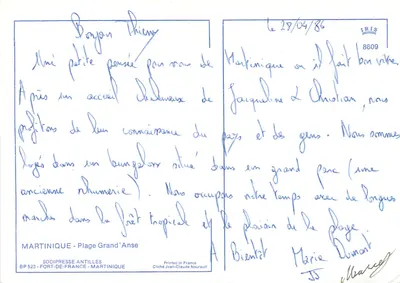 le 28/04/86
IRIS
8609
Bonjour Thierry
Une petite pensée pour vous de Martinique ou il fait bon vivre.
Après un accueil chaleureux de Jacqueline & Christian, nous
profitons de leur connaissance du pays et des gens. Nous sommes
logés dans un bungalow situé dans un grand parc (une
ancienne rhumerie). Nous occupons notre temps avec de longues
marches dans la forêt tropicale et le plaisir de la plage.
A Bientôt Marie
MARTINIQUE - Plage Grand'Anse
SOCIPRESSE ANTILLES
BP 523 - FORT-DE-FRANCE - MARTINIQUE
Printed in France
Cliché Jean-Claude